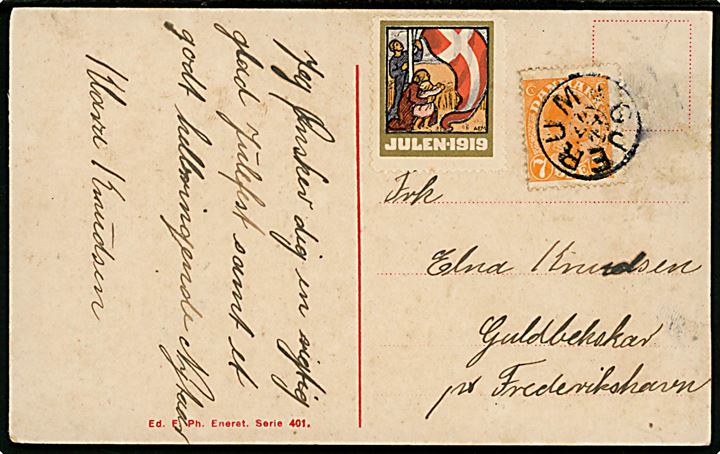 Jeg Ønsker dig en rigtig
glad Julefest samt et
godt helbringende Nytaar
Knudsen
Ed. F. Ph. Eneret. Serie 401.
JULEN·1919
DANMARK
7
GJERUM
Frk
Elna Knudsen
Guldbekskar
pr Frederikshavn